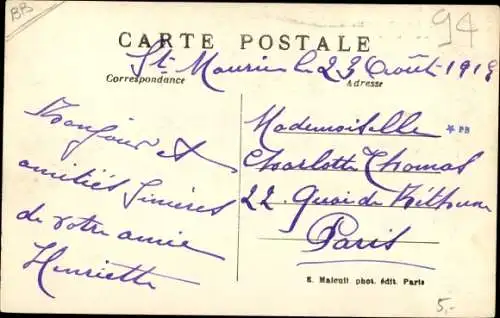 BB
94
CARTE POSTALE
St Maurice le 23 Août 1918
Correspondance
Adresse
Bonjour et
amitiés sincères
de votre amie
Henriette
Mademoiselle
Charlotte Thomas
22 Quai de Béthune
Paris
* PB
S. Maleuit phot. édit. Paris
5,-